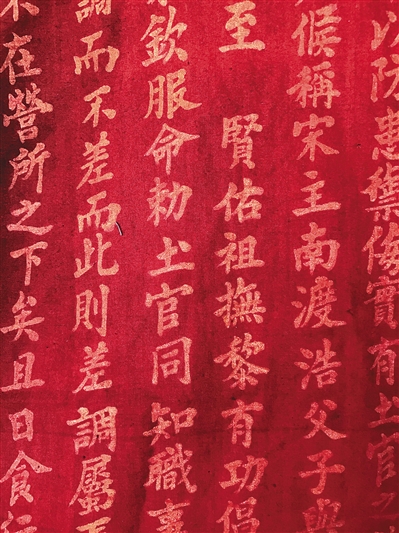 以防患禦侮實有土官
候稱宋主南渡浩父子與
至 賢佑祖撫黎有功倡
欽服命勅土官同知職事
調而不差而此則差調屬
不在營所之下矣且日食